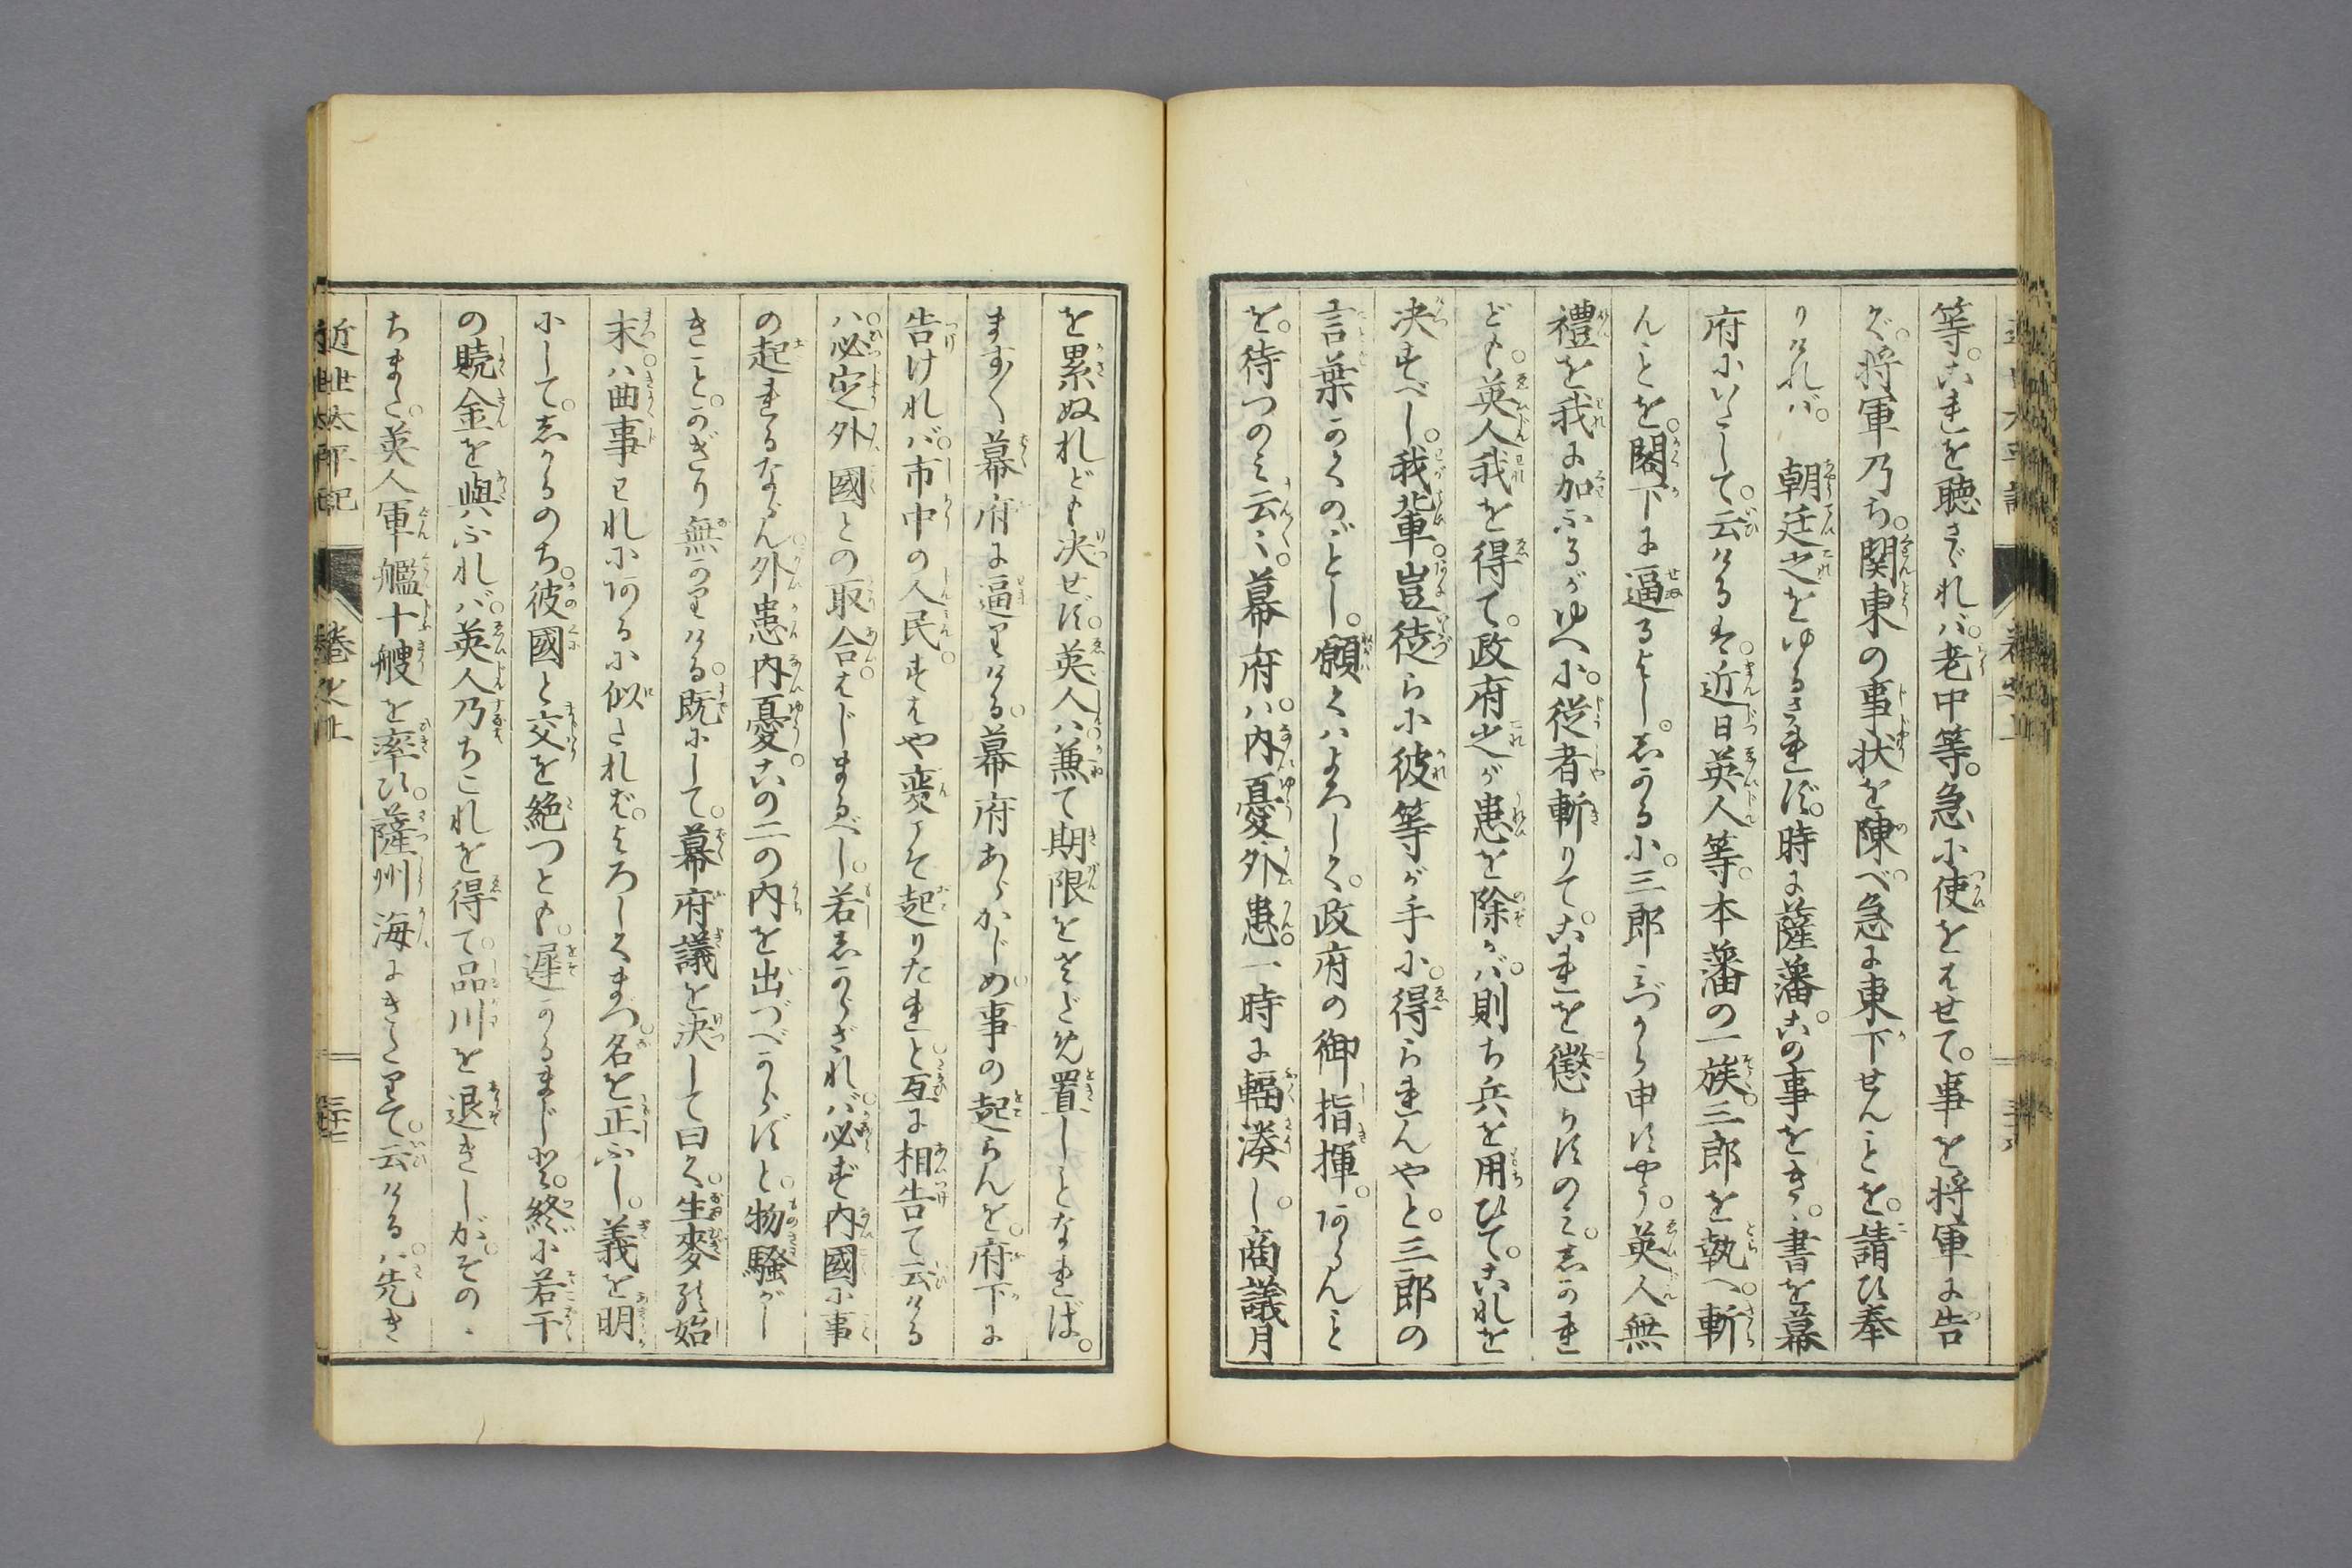 等。これを聴ざれバ。老中等。急に使をはせて。事を将軍に告
ぐ。将軍乃ち。関東の事状を陳べ。急に東下せんことを。請ひ奉
りけれバ。朝廷之をゆるされず。時に薩藩。この事をきゝ。書を幕
府にいたして。云けるハ。近日英人等。本藩の一族。三郎を執へ。斬
んことを。閣下に逼るよし。しかるに。三郎みづから申すやう。英人無
禮を我に加ふるがゆへに。従者斬りて。これを懲らすのみ。しかれ
ども。英人我を得て。政府之が患を除かバ。則ち兵を用ひて。これを
决すべし。我輩。豈徒らに彼等が手に。得られんやと。三郎の
言葉かくのごとし。願くハよろしく。政府の御指揮。あらんこと
を。待つのみ云々。幕府。ハ内憂外患。一時に輻湊し。商議月
を累ぬれども决せず。英人ハ兼て期限をさだめ置しとなれば。
ます〳〵幕府に逼りける。幕府あらかじめ事の起らんを。府下に
告けれバ。市中の人民。すはや変こそ起りたれと。互に相告て云ける
ハ。必定外國との取合。はじまるべし。若しからざれバ。必ず内國に事
の起れるならん。外患内憂。この二の内を出づべからずと。物騒がし
きこと。かぎり無かりける。既にして。幕府議を决して曰く。生麥の始
末。ハ曲事われにあるに似たれば。よろしくまづ。名を正ふし。義を明
にして。しかるのち。彼國と交を絶つとも。遅かるまじと。終に若干
の贖金を與ふれバ。英人乃ちこれを得て。品川を退きしが。そのゝ
ちまた。英人軍艦十艘を率ひ。薩州海にきたりて。云けるハ。先き
近世太平記
巻之上
三十二